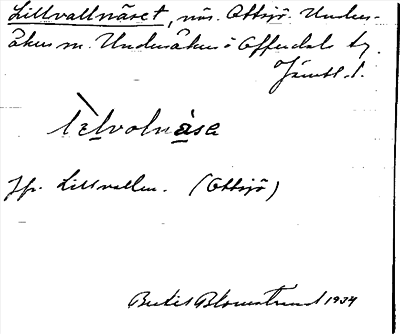 Lillvallnäset, näs. Ottsjö. Unders-
åkers sn. Undersåkers o Offerdals tg.
Jämtl. l.
lèlvolnàsa
Jfr. Lillvallen. (Ottsjö)
Bertil Blomstrand 1934